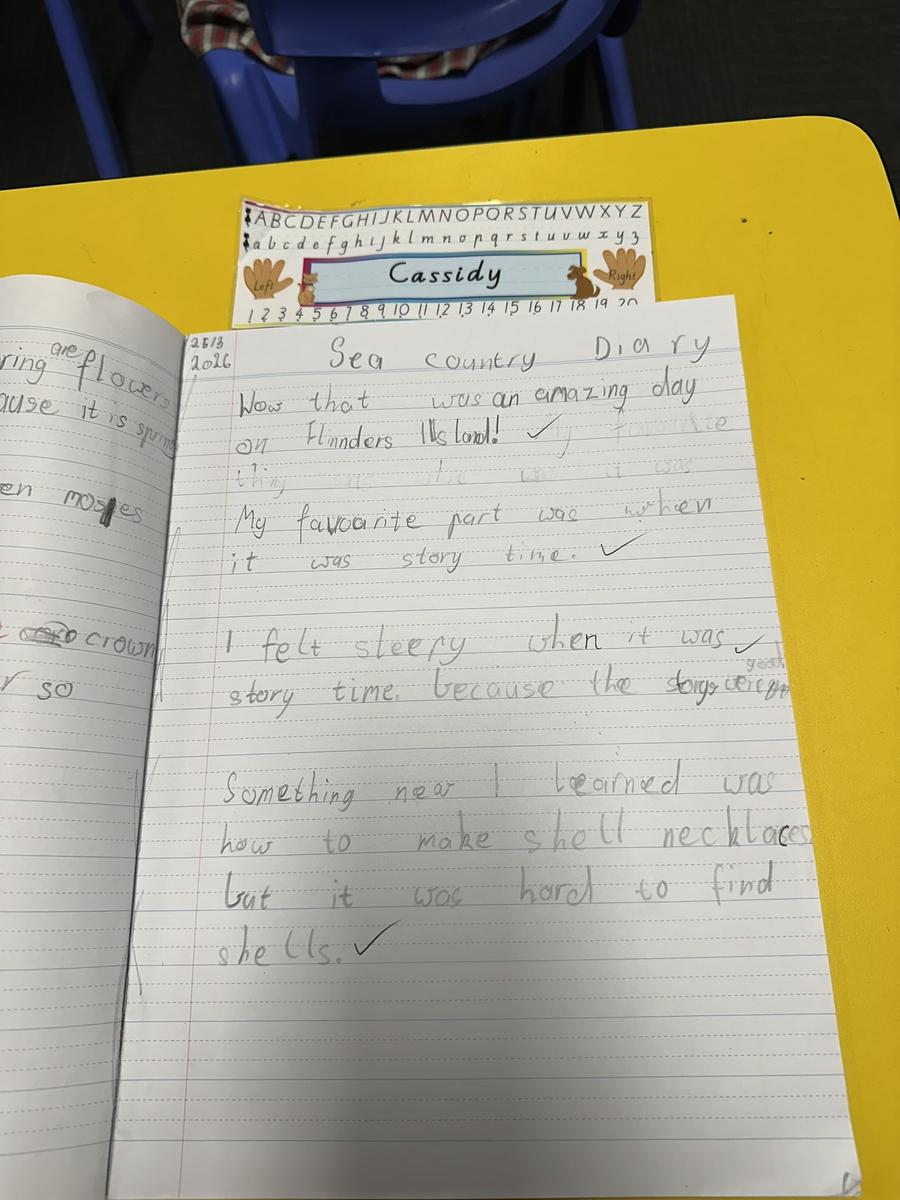 ABCDEFGHIJKLMNOPQRSTUVWXYZ
abcdefghijklmnopqrstuvwxyz
Left
Cassidy
Right
1 2 3 4 5 6 7 8 9 10 11 12 13 14 15 16 17 18 19 20
are
ring flowers
ause it is spring
en
crown
so
2026
Sea country Diary
Wow that was an amazing day
on Flinnders IIsland!
thing it was
My favoarite part was when
it was story time.
I felt sleepy when it was
story time. because the
Something new I learned was
how to make shell necklaces
but it was hard to find
shells.